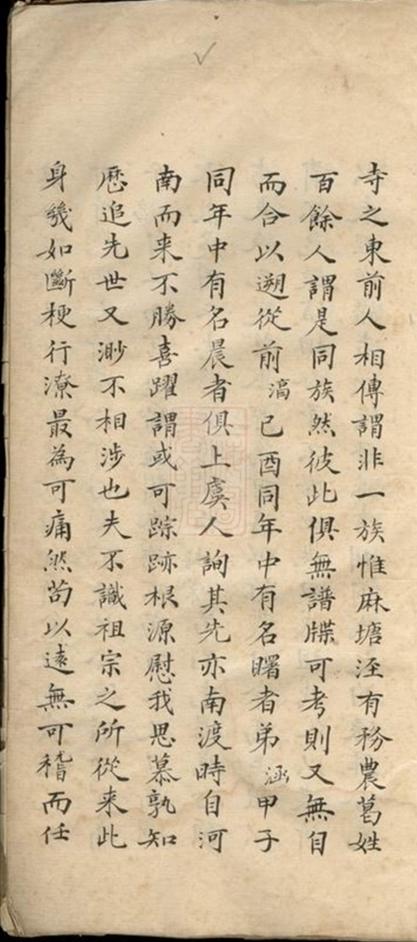 寺之東前人相傳謂非一族惟麻塘涇有務農葛姓
百餘人謂是同族然彼此俱無譜牒可考則又無自
而合以遡從前滈己酉同年中有名曙者弟涵甲子
同年中有名晨者俱上虞人詢其先亦南渡時自河
南而来不勝喜躍謂或可踪跡根源慰我思慕孰知
歷追先世又渺不相涉也夫不識祖宗之所從来此
身幾如斷梗行潦最為可痛然苟以遠無可稽而任